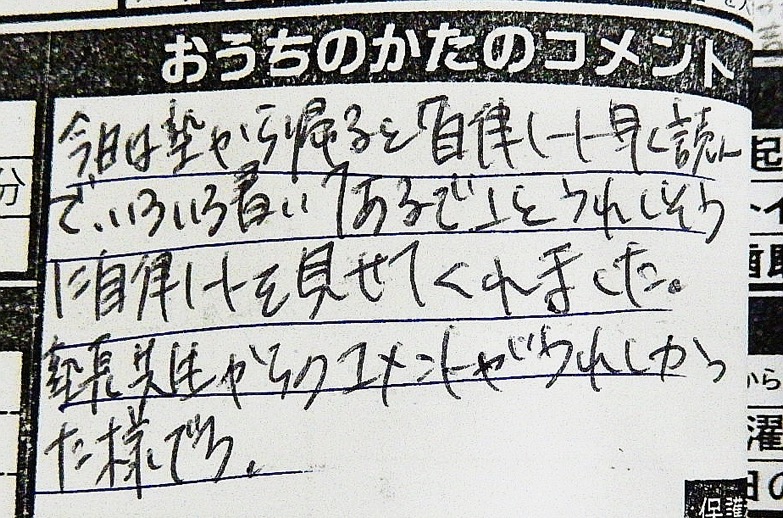 おうちのかたのコメント
今日は塾から帰ると「自律ノート早く読ん
で、いろいろ書いてあるで」とうれしそう
に自律ノートを見せてくれました。
塾長先生からのコメントがうれしかっ
た様です。
分
から
濯
日の
保護